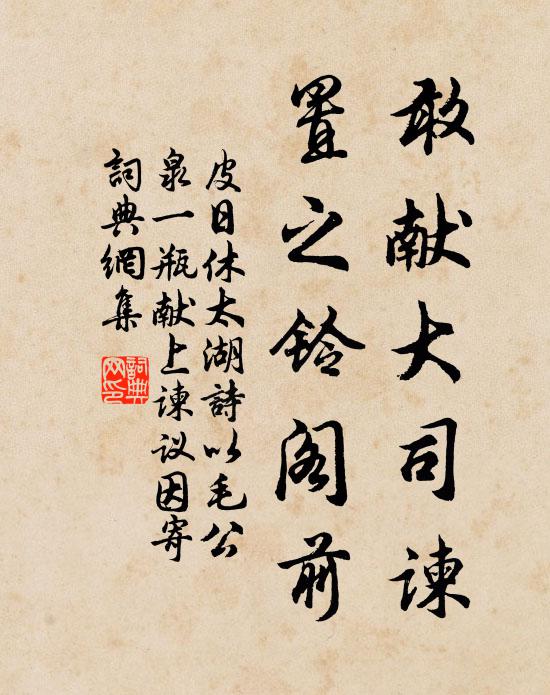 敢献大司谏
置之铃阁前
皮日休太湖詩以毛公
泉一瓶献上谏议因寄
詞典網集
詞典网印